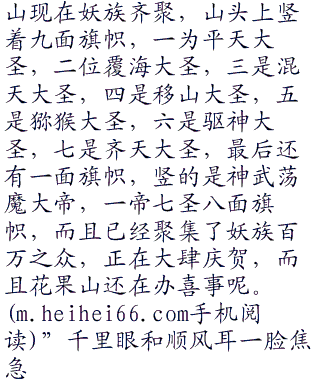 山现在妖族齐聚，山头上竖
着九面旗帜，一为平天大
圣，二位覆海大圣，三是混
天大圣，四是移山大圣，五
是猕猴大圣，六是驱神大
圣，七是齐天大圣，最后还
有一面旗帜，竖的是神武荡
魔大帝，一帝七圣八面旗
帜，而且已经聚集了妖族百
万之众，正在大肆庆贺，而
且花果山还在办喜事呢。
(m.heihei66.com手机阅
读)”千里眼和顺风耳一脸焦
急